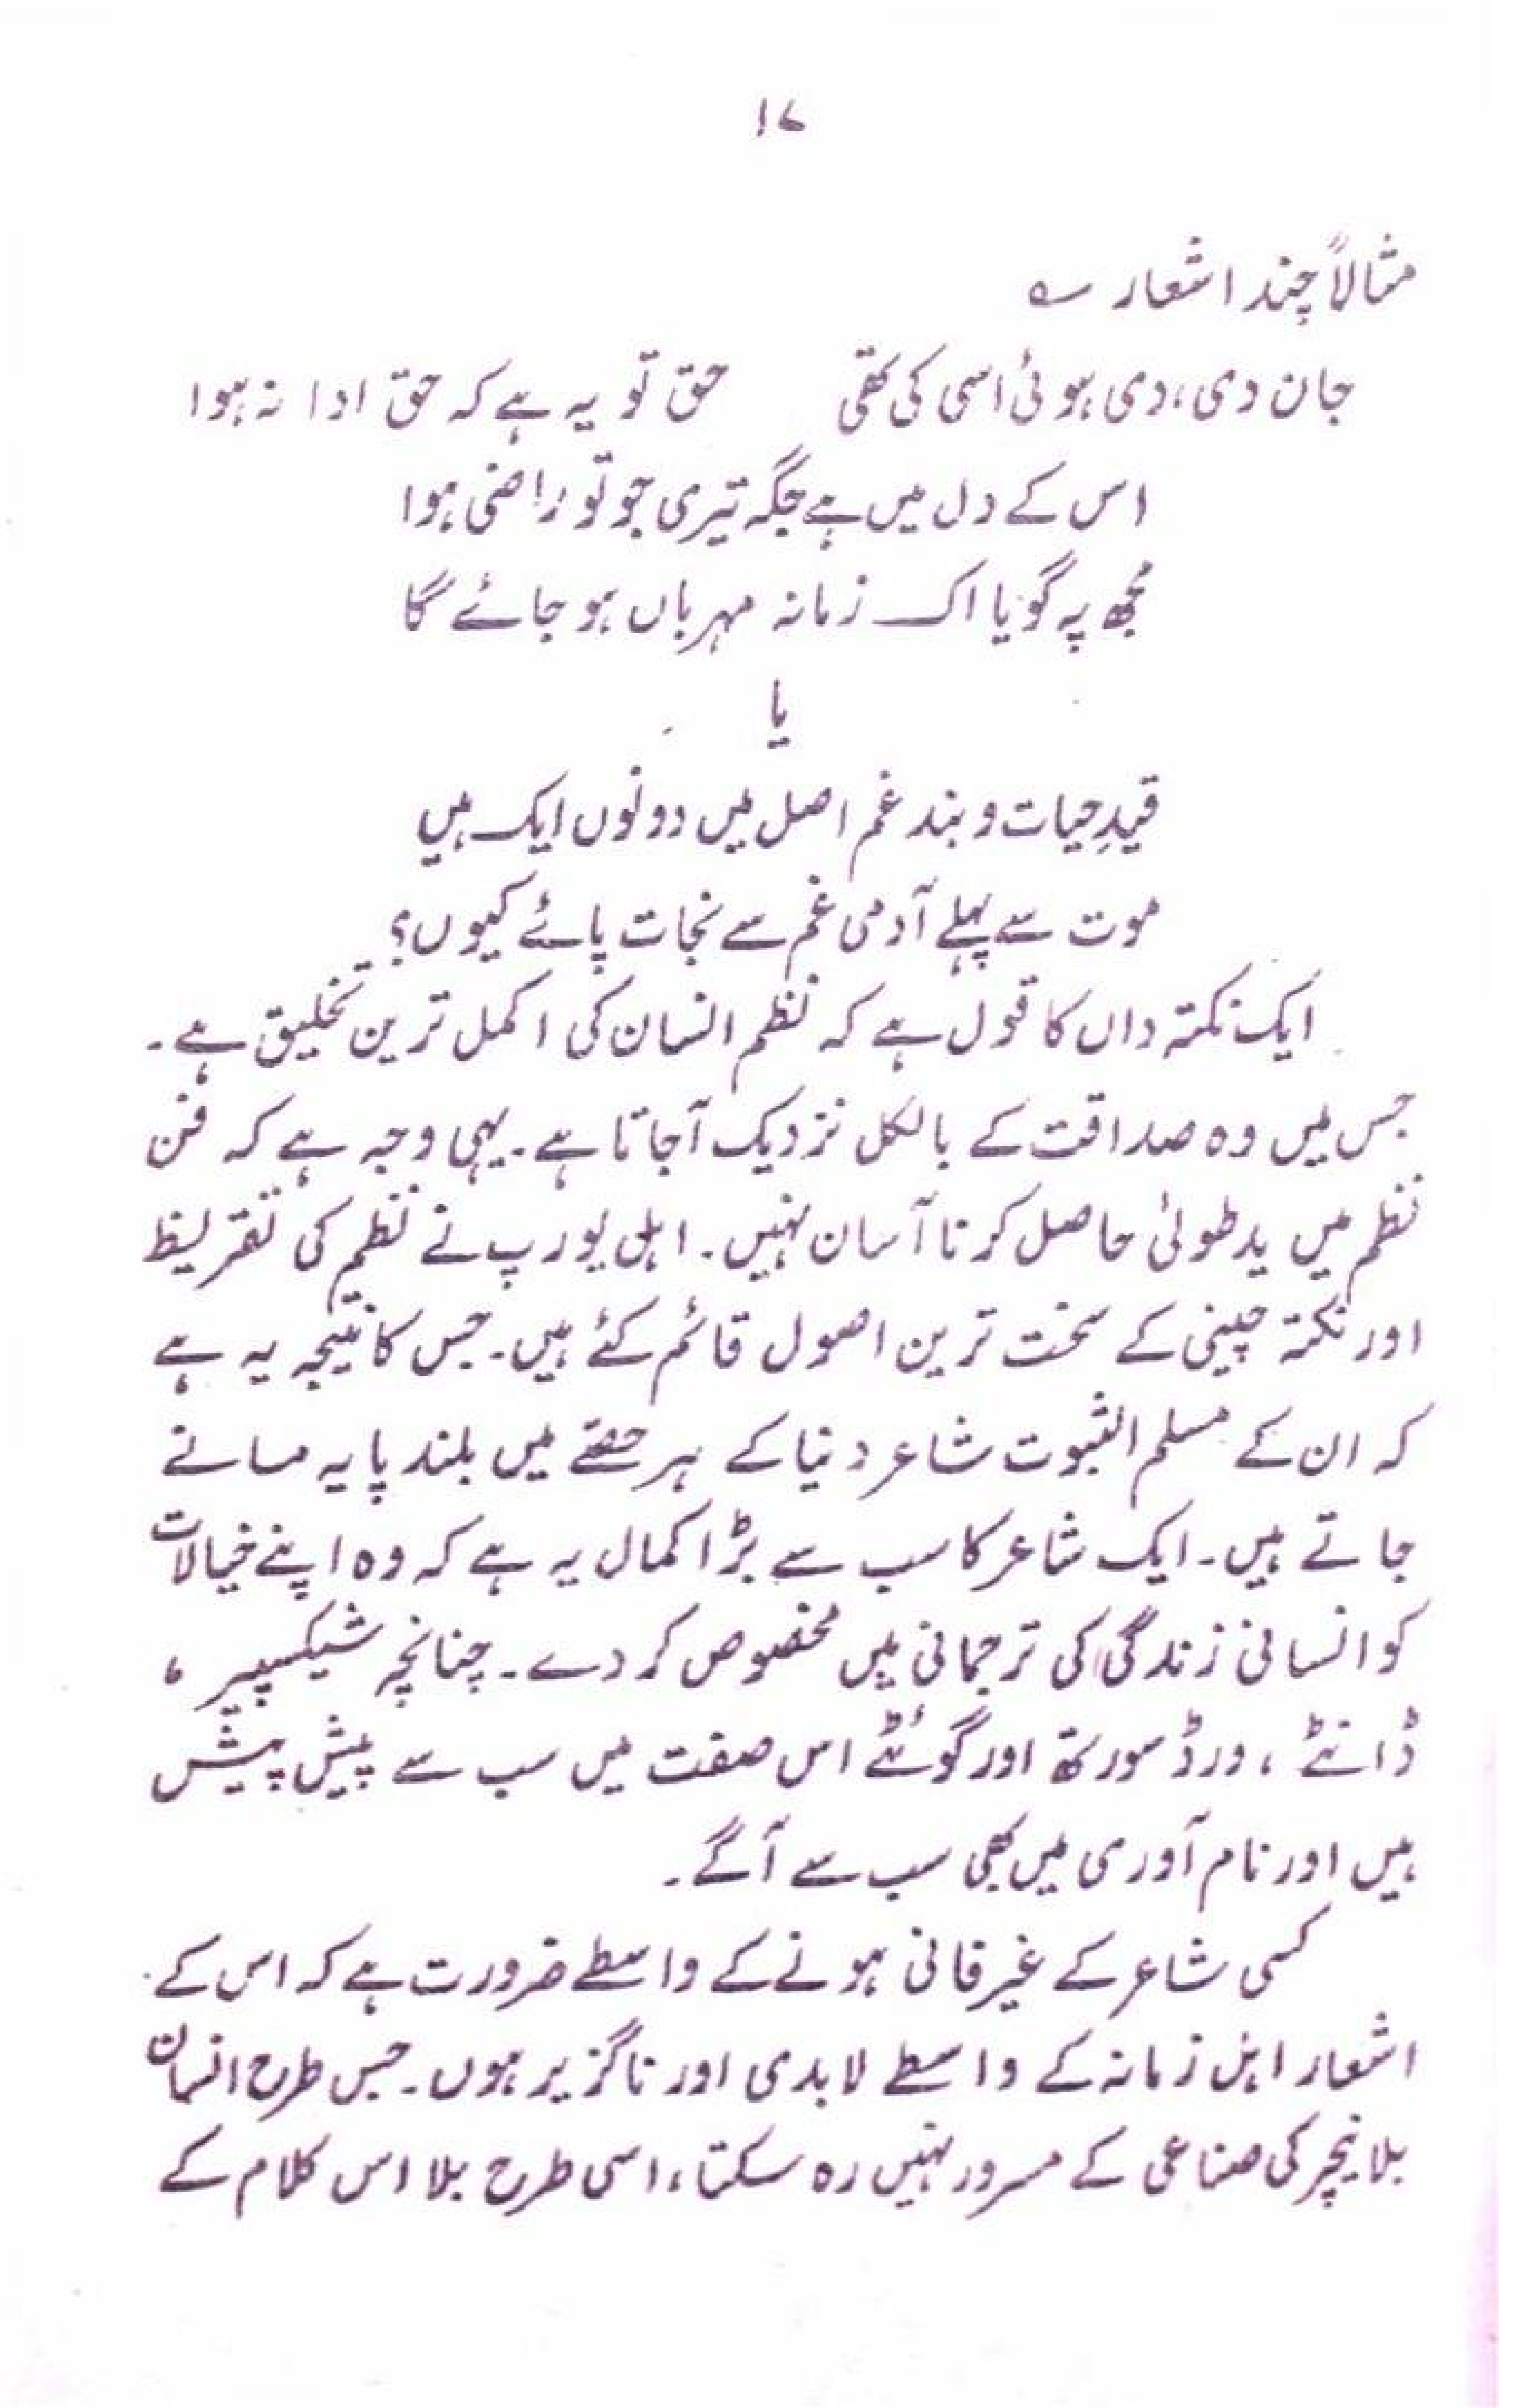 ۱۷
مثالاً چند اشعار ؎
جان دی، دی ہوئی اسی کی تھی حق تو یہ ہے کہ حق ادا نہ ہوا
اس کے دل میں ہے جگہ تیری جو تو راضی ہوا
مجھ پہ گویا اک زمانہ مہرباں ہو جائے گا
یا
قیدِ حیات و بند غم اصل میں دونوں ایک ہیں
موت سے پہلے آدمی غم سے نجات پائے کیوں؟
ایک نکتہ داں کا قول ہے کہ نظم انسان کی اکمل ترین تخلیق ہے۔
جس میں وہ صداقت کے بالکل نزدیک آجاتا ہے۔ یہی وجہ ہے کہ فن
نظم میں ید طولیٰ حاصل کرنا آسان نہیں۔ اہل یورپ نے نظم کی تقریظ
اور نکتہ چینی کے سخت ترین اصول قائم کئے ہیں۔ جس کا نتیجہ یہ ہے
کہ ان کے مسلم الثبوت شاعر دنیا کے ہر حصّے میں بلند پایہ مانے
جاتے ہیں۔ ایک شاعر کا سب سے بڑا کمال یہ ہے کہ وہ اپنے خیالات
کو انسانی زندگی کی ترجمانی میں مخصوص کر دے۔ چنانچہ شیکسپیر،
ڈانٹے، ورڈسورتھ اور گوئٹے اس صفت میں سب سے پیش پیش
ہیں اور نام آوری میں بھی سب سے آگے۔
کسی شاعر کے غیرفانی ہونے کے واسطے ضرورت ہے کہ اس کے
اشعار اہل زمانہ کے واسطے لابدی اور ناگزیر ہوں۔ جس طرح انسان
بلا نیچر کی صناعی کے مسرور نہیں رہ سکتا، اسی طرح بلا اس کلام کے